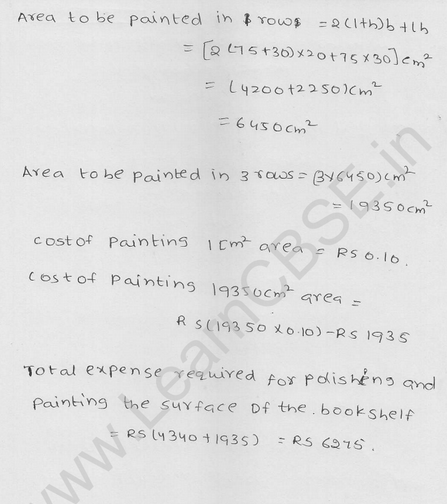 Area to be painted in 1 rows = 2(l+h)b + lh
= [2(75+30)×20+75×30]cm²
= (4200+2250)cm²
= 6450cm²
Area to be painted in 3 rows = (3×6450)cm²
= 19350cm²
cost of painting 1cm² area = RS 0.10.
cost of painting 19350cm² area =
RS(19350 × 0.10) - RS 1935
Total expense required for polisheng and
painting the surface of the bookshelf
= RS(4340+1935) = RS 6275.
www.LearnCBSE.in